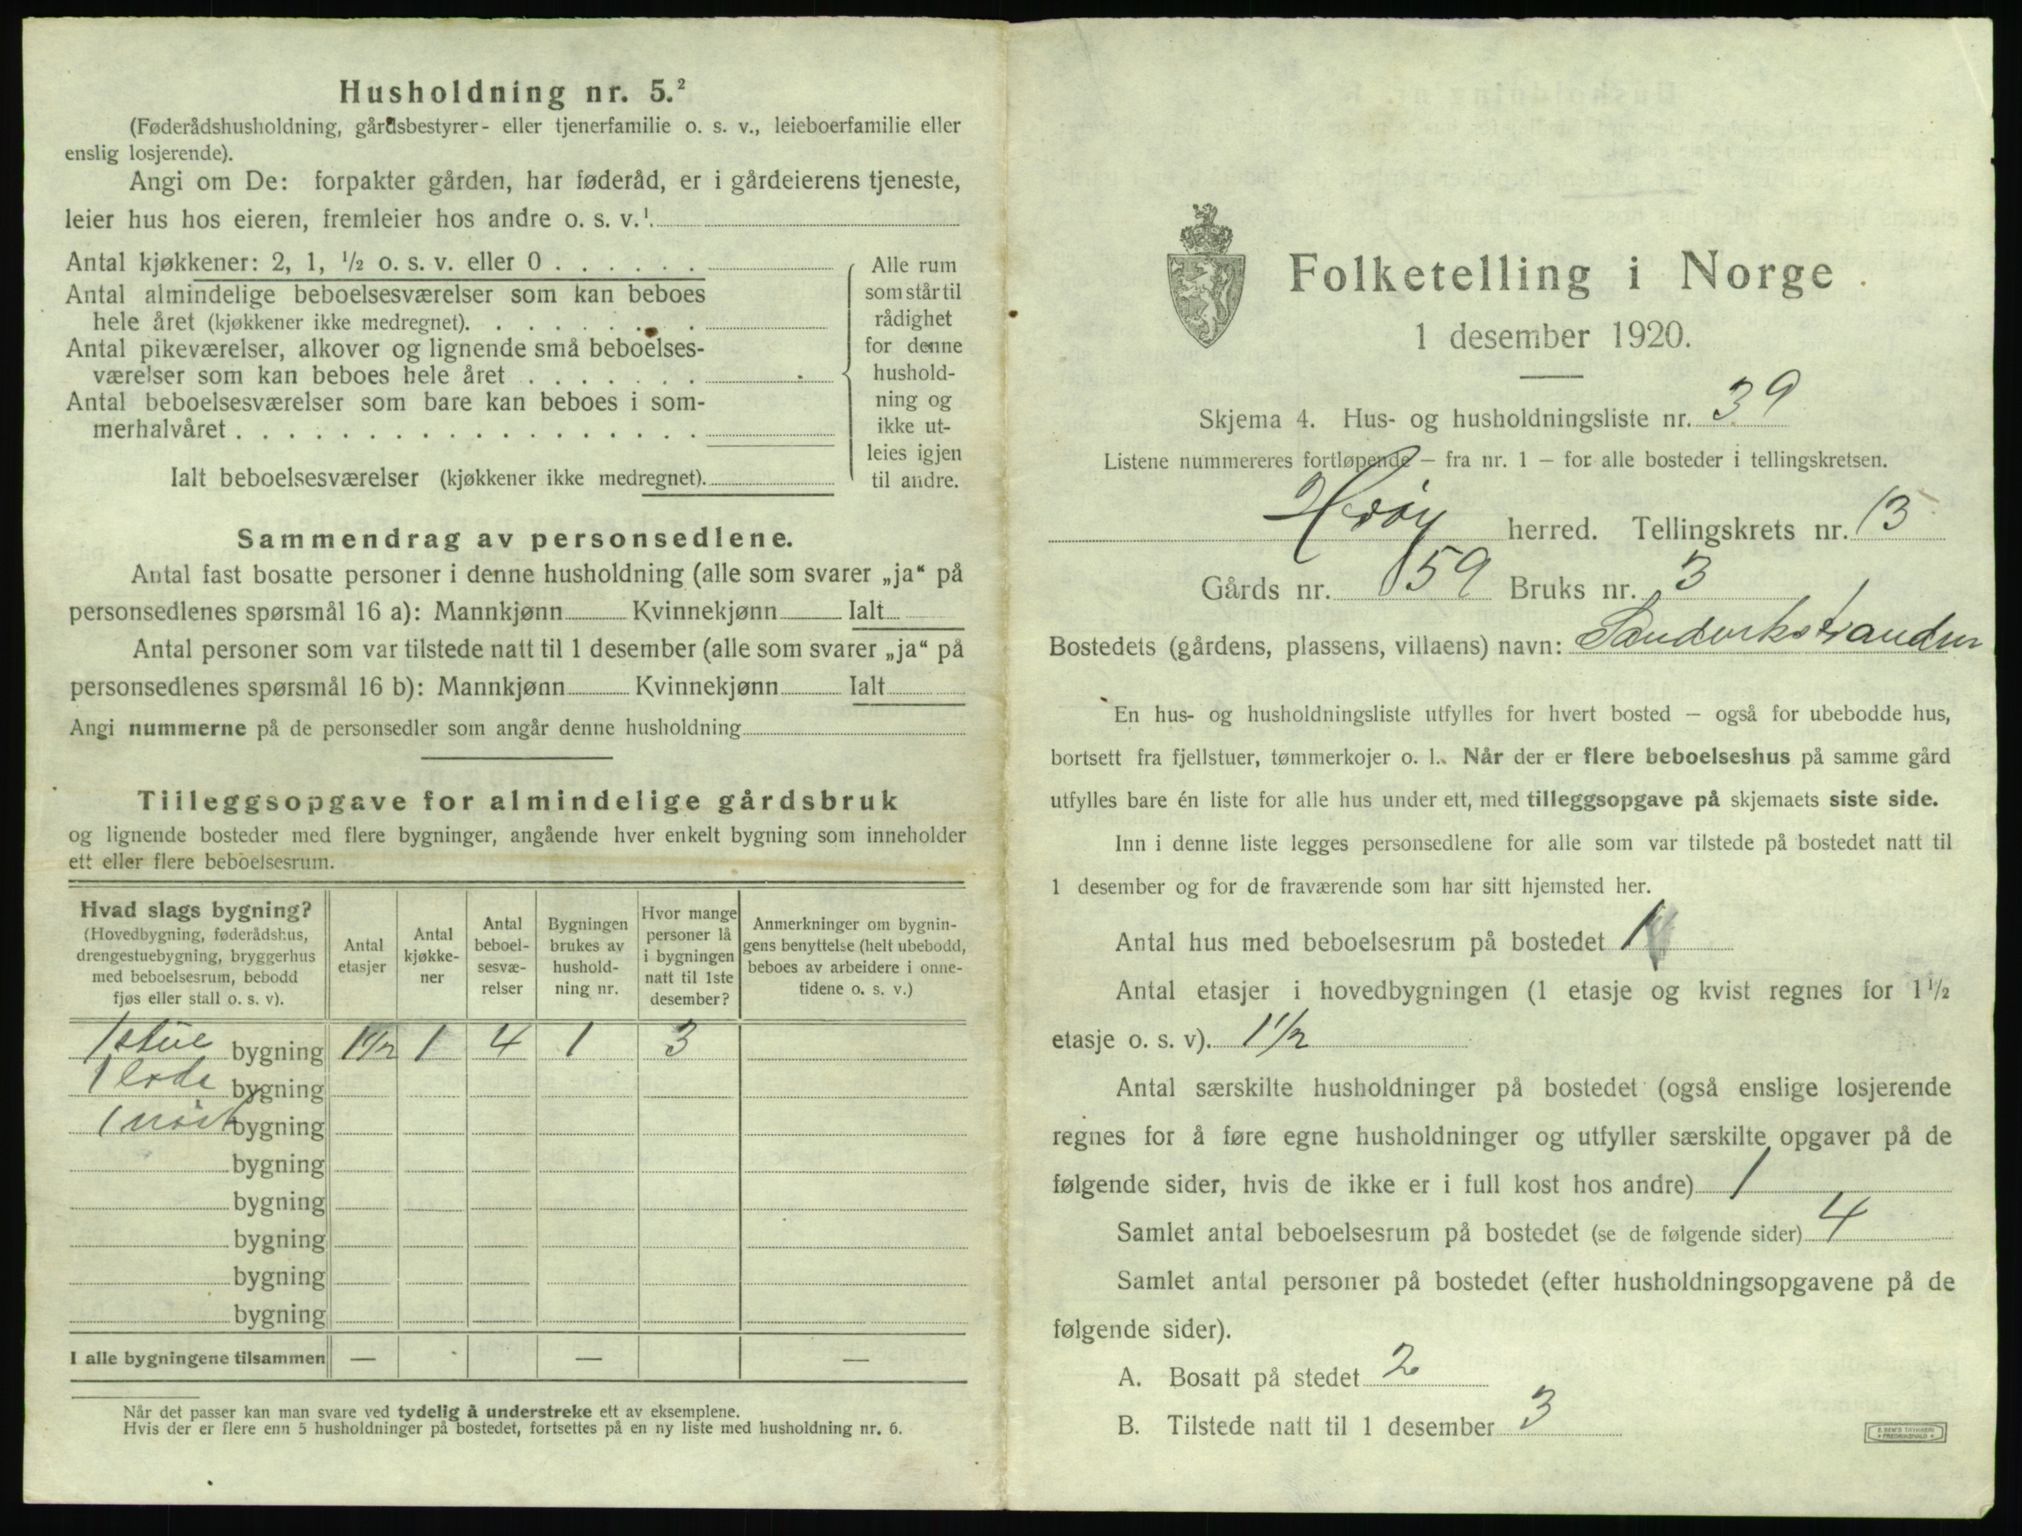 Husholdning nr. 5.²
(Føderådshusholdning, gårdsbestyrer- eller tjenerfamilie o. s. v., leieboerfamilie eller
enslig losjerende).
Angi om De: forpakter gården, har føderåd, er i gårdeierens tjeneste,
leier hus hos eieren, fremleier hos andre o. s. v.¹
Antal kjøkkener: 2, 1, ½ o. s. v. eller 0 . . . . . .
Antal almindelige beboelsesværelser som kan beboes
hele året (kjøkkener ikke medregnet). . . . . . . . .
Antal pikeværelser, alkover og lignende små beboelses-
værelser som kan beboes hele året . . . . . . .
Antal beboelsesværelser som bare kan beboes i som-
merhalvåret . . . . . . . . . . . . . . . . .
Ialt beboelsesværelser (kjøkkener ikke medregnet).
Alle rum
som står til
rådighet
for denne
hushold-
ning og
ikke ut-
leies igjen
til andre.
Sammendrag av personsedlene.
Antal fast bosatte personer i denne husholdning (alle som svarer „ja“ på
personsedlenes spørsmål 16 a): Mannkjønn Kvinnekjønn Ialt
Antal personer som var tilstede natt til 1 desember (alle som svarer „ja“ på
personsedlenes spørsmål 16 b): Mannkjønn Kvinnekjønn Ialt
Angi nummerne på de personsedler som angår denne husholdning
Tilleggsopgave for almindelige gårdsbruk
og lignende bosteder med flere bygninger, angående hver enkelt bygning som inneholder
ett eller flere beboelsesrum.
Hvad slags bygning?
(Hovedbygning, føderådshus,
drengestuebygning, bryggerhus
med beboelsesrum, bebodd
fjøs eller stall o. s. v).
Antal
etasjer
Antal
kjøkke-
ner
Antal
beboel-
sesvæ-
relser
Bygningen
brukes av
hushold-
ning nr.
Hvor mange
personer lå
i bygningen
natt til 1ste
desember?
Anmerkninger om bygnin-
gens benyttelse (helt ubebodd,
beboes av arbeidere i onne-
tidene o. s. v.)
1 stue bygning 1½ 1 4 1 3
1 lode bygning
1 nöst bygning
bygning
bygning
bygning
bygning
bygning
I alle bygningene tilsammen — — —
Når det passer kan man svare ved tydelig å understreke ett av eksemplene.
Hvis der er flere enn 5 husholdninger på bostedet, fortsettes på en ny liste med husholdning nr. 6.
Folketelling i Norge
1 desember 1920.
Skjema 4. Hus- og husholdningsliste nr. 39
Listene nummereres fortløpende — fra nr. 1 — for alle bosteder i tellingskretsen.
Herøy herred. Tellingskrets nr. 13
Gårds nr. 59 Bruks nr. 3
Bostedets (gårdens, plassens, villaens) navn: Sandvikstranden
En hus- og husholdningsliste utfylles for hvert bosted — også for ubebodde hus,
bortsett fra fjellstuer, tømmerkojer o. l. Når der er flere beboelseshus på samme gård
utfylles bare én liste for alle hus under ett, med tilleggsopgave på skjemaets siste side.
Inn i denne liste legges personsedlene for alle som var tilstede på bostedet natt til
1 desember og for de fraværende som har sitt hjemsted her.
Antal hus med beboelsesrum på bostedet 1
Antal etasjer i hovedbygningen (1 etasje og kvist regnes for 1½
etasje o. s. v). 1½
Antal særskilte husholdninger på bostedet (også enslige losjerende
regnes for å føre egne husholdninger og utfyller særskilte opgaver på de
følgende sider, hvis de ikke er i full kost hos andre) 1
Samlet antal beboelsesrum på bostedet (se de følgende sider) 4
Samlet antal personer på bostedet (efter husholdningsopgavene på de
følgende sider).
A. Bosatt på stedet 2
B. Tilstede natt til 1 desember 3